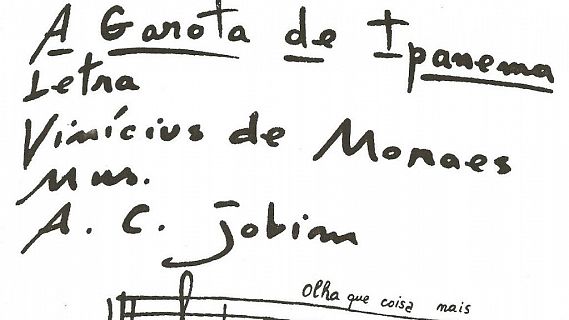 A Garota de Ipanema
Letra
Vinícius de Moraes
Mus.
A. C. Jobim
Olha que coisa mais